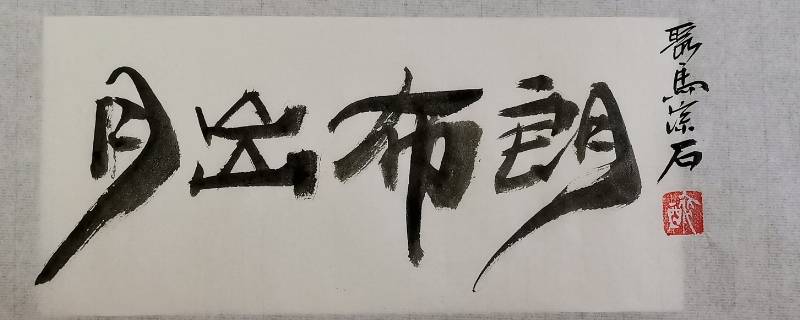 月出布朗
馬石